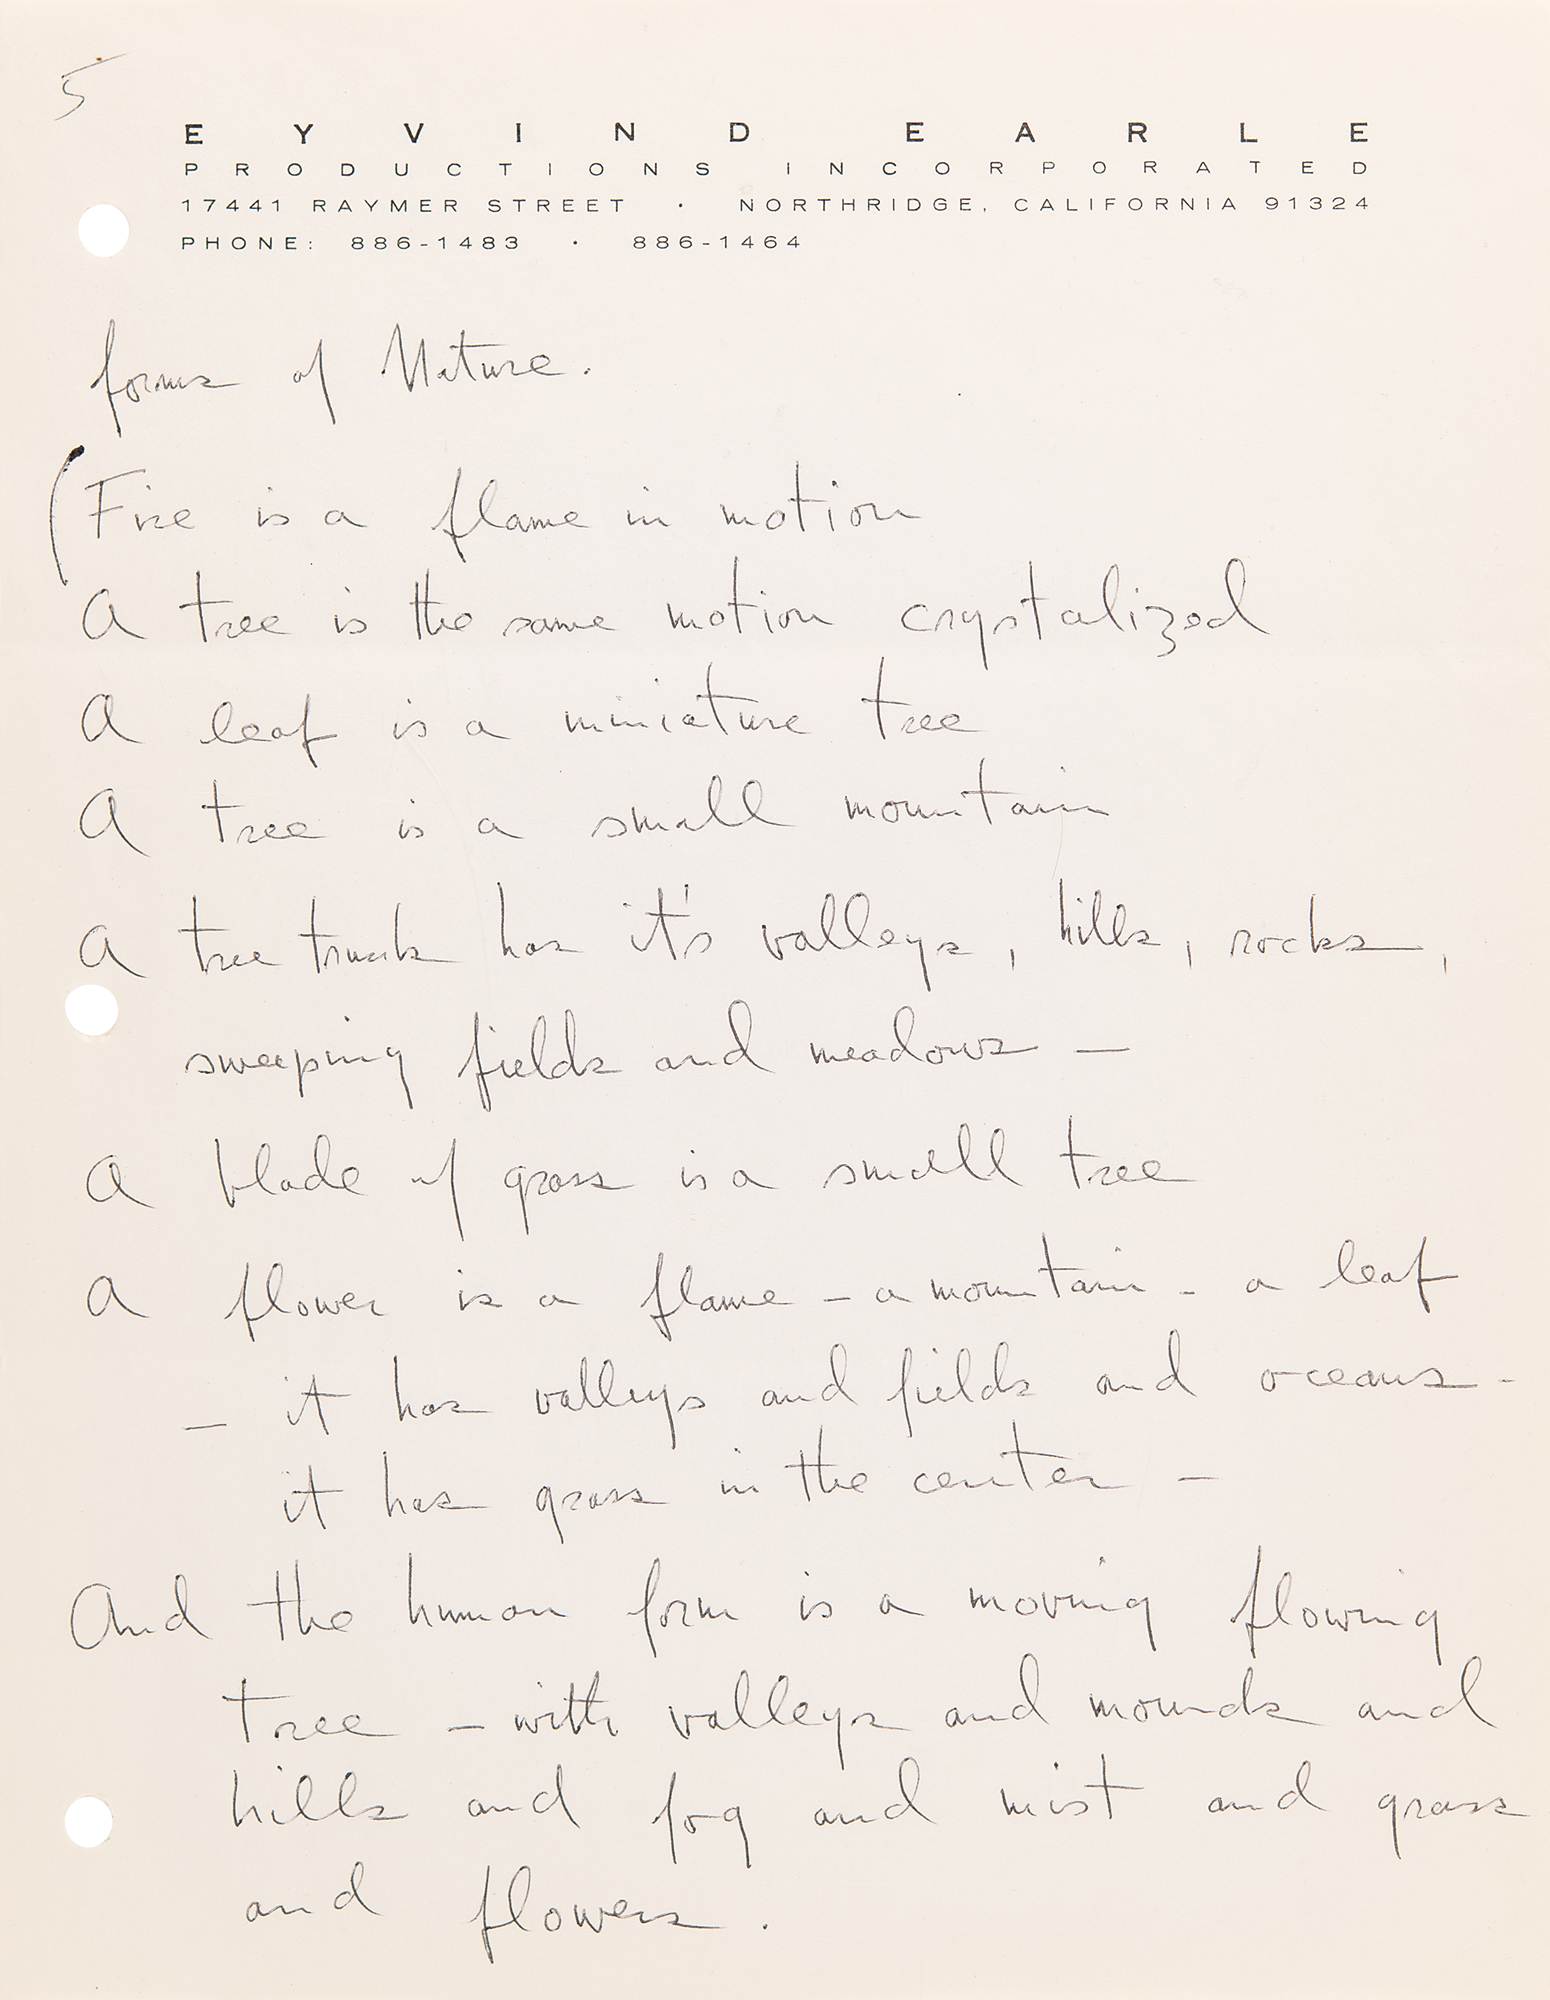 5
EYVIND EARLE
PRODUCTIONS INCORPORATED
17441 RAYMER STREET · NORTHRIDGE, CALIFORNIA 91324
PHONE: 886-1483 · 886-1464
forms of Nature.
(Fire is a flame in motion
A tree is the same motion crystalized
A leaf is a miniature tree
A tree is a small mountain
A tree trunk has it's valleys, hills, rocks,
sweeping fields and meadows —
A blade of grass is a small tree
A flower is a flame – a mountain - a leaf
— it has valleys and fields and oceans -
it has grass in the center –
And the human form is a moving flowing
tree – with valleys and mounds and
hills and fog and mist and grass
and flowers.